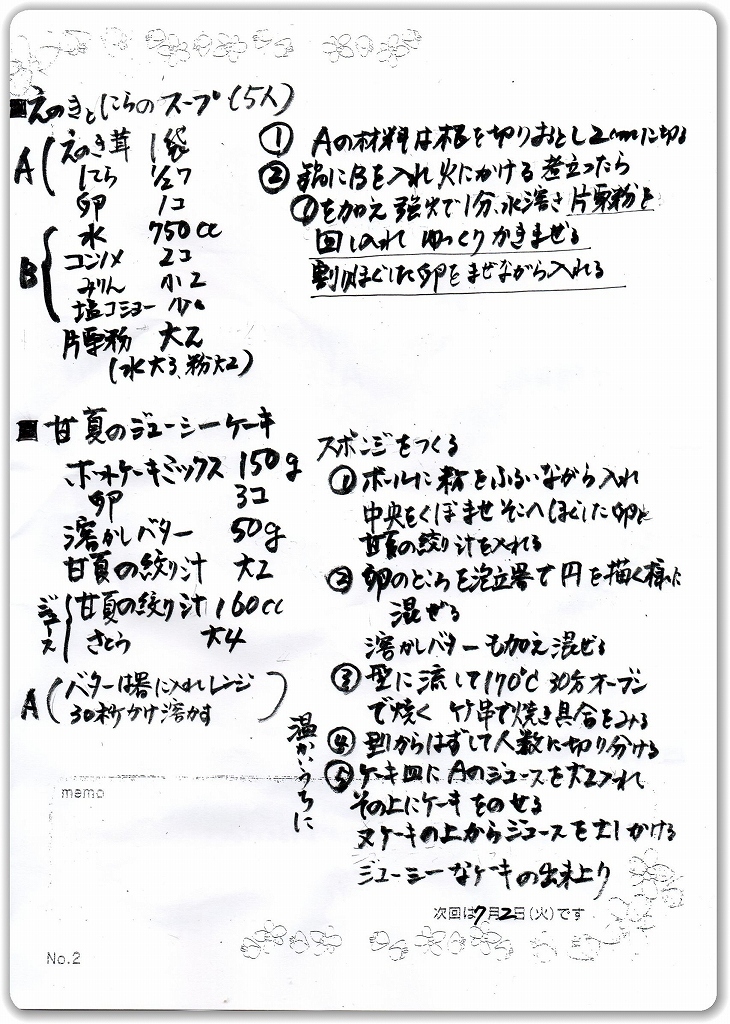 ■えのきとにらのスープ(5人)
A
えのき茸 1袋
にら 1/2ワ
卵 1コ
B
水 750cc
コンソメ 2コ
みりん 小2
塩コショー 少々
片栗粉 大2
(水大3、粉大2)
① Aの材料は根を切りおとし2cmに切る
② 鍋にBを入れ火にかける 煮立ったら
①を加え 強火で1分、水溶き片栗粉を
回し入れ ゆっくりかきまぜる
割りほぐした卵をまぜながら入れる
■ 甘夏のジューシーケーキ
ホットケーキミックス 150g
卵 3コ
溶かしバター 50g
甘夏の絞り汁 大2
ジュース
甘夏の絞り汁 160cc
さとう 大4
A
バターは器に入れレンジ
30秒かけ溶かす
スポンジをつくる
① ボールに粉をふるいながら入れ
中央をくぼませ そこへほぐした卵と
甘夏の絞り汁を入れる
② 卵のところを泡立器で円を描く様に
混ぜる
溶かしバターも加え混ぜる
③ 型に流して170℃ 30分オーブン
で焼く 竹串で焼き具合をみる
④ 型からはずして人数に切り分ける
温かいうちに
⑤ ケーキ皿にAのジュースを大2入れ
その上にケーキをのせる
又ケーキの上からジュースを大1かける
ジューシーなケーキの出来上り
memo
次回は7月2日(火)です
No.2